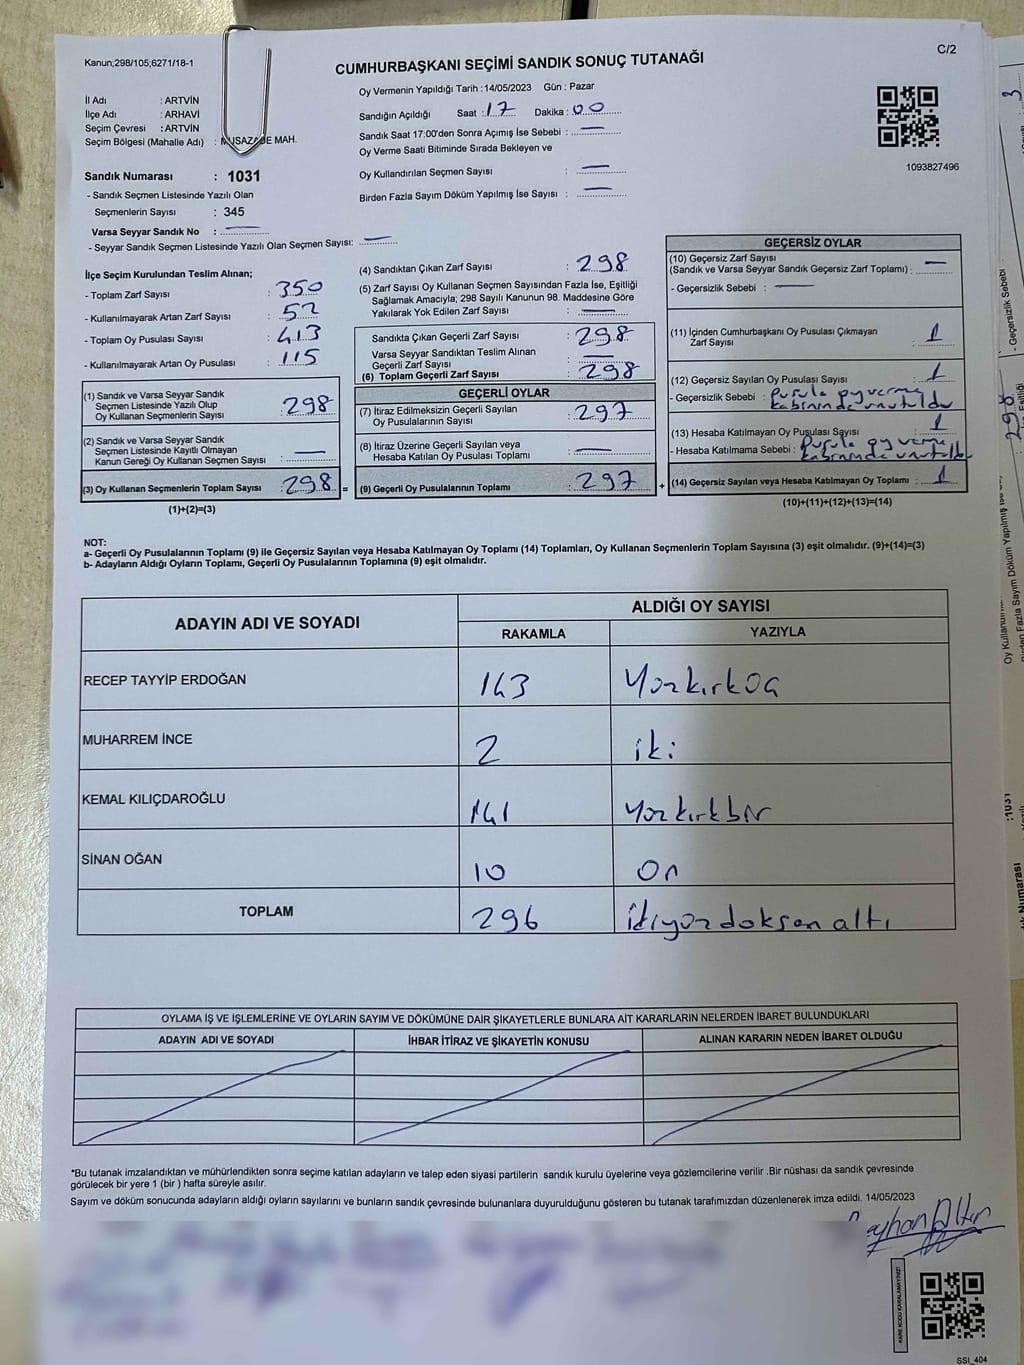 Kanun;298/105;6271/18-1
C/2
CUMHURBAŞKANI SEÇİMİ SANDIK SONUÇ TUTANAĞI
İl Adı : ARTVİN
İlçe Adı : ARHAVİ
Seçim Çevresi : ARTVİN
Seçim Bölgesi (Mahalle Adı) : MAH.
Sandık Numarası : 1031
- Sandık Seçmen Listesinde Yazılı Olan
Seçmenlerin Sayısı : 345
Varsa Seyyar Sandık No : —
- Seyyar Sandık Seçmen Listesinde Yazılı Olan Seçmen Sayısı: —
Oy Vermenin Yapıldığı Tarih :14/05/2023 Gün : Pazar
Sandığın Açıldığı Saat : 17 Dakika : 00
Sandık Saat 17:00'den Sonra Açımış İse Sebebi : —
Oy Verme Saati Bitiminde Sırada Bekleyen ve
Oy Kullandırılan Seçmen Sayısı : —
Birden Fazla Sayım Döküm Yapılmış İse Sayısı : —
1093827496
İlçe Seçim Kurulundan Teslim Alınan;
- Toplam Zarf Sayısı : 350
- Kullanılmayarak Artan Zarf Sayısı : 52
- Toplam Oy Pusulası Sayısı : 413
- Kullanılmayarak Artan Oy Pusulası : 115
(1) Sandık ve Varsa Seyyar Sandık
Seçmen Listesinde Yazılı Olup
Oy Kullanan Seçmenlerin Sayısı : 298
(2) Sandık ve Varsa Seyyar Sandık
Seçmen Listesinde Kayıtlı Olmayan
Kanun Gereği Oy Kullanan Seçmen Sayısı : —
(3) Oy Kullanan Seçmenlerin Toplam Sayısı : 298 =
(1)+(2)=(3)
(4) Sandıktan Çıkan Zarf Sayısı : 298
(5) Zarf Sayısı Oy Kullanan Seçmen Sayısından Fazla İse, Eşitliği
Sağlamak Amacıyla; 298 Sayılı Kanunun 98. Maddesine Göre
Yakılarak Yok Edilen Zarf Sayısı : —
Sandıkta Çıkan Geçerli Zarf Sayısı : 298
Varsa Seyyar Sandıktan Teslim Alınan
Geçerli Zarf Sayısı : —
(6) Toplam Geçerli Zarf Sayısı : 298
GEÇERLİ OYLAR
(7) İtiraz Edilmeksizin Geçerli Sayılan
Oy Pusulalarının Sayısı : 297
(8) İtiraz Üzerine Geçerli Sayılan veya
Hesaba Katılan Oy Pusulası Toplamı : —
(9) Geçerli Oy Pusulalarının Toplamı : 297 +
GEÇERSİZ OYLAR
(10) Geçersiz Zarf Sayısı
(Sandık ve Varsa Seyyar Sandık Geçersiz Zarf Toplamı) : —
- Geçersizlik Sebebi : —
(11) İçinden Cumhurbaşkanı Oy Pusulası Çıkmayan
Zarf Sayısı : 1
(12) Geçersiz Sayılan Oy Pusulası Sayısı : 1
- Geçersizlik Sebebi : pusula oy verme
kabininde unutuldu
(13) Hesaba Katılmayan Oy Pusulası Sayısı : 1
- Hesaba Katılmama Sebebi : pusula oy verme
kabininde unutuldu
(14) Geçersiz Sayılan veya Hesaba Katılmayan Oy Toplamı : 1
(10)+(11)+(12)+(13)=(14)
NOT:
a- Geçerli Oy Pusulalarının Toplamı (9) ile Geçersiz Sayılan veya Hesaba Katılmayan Oy Toplamı (14) Toplamları, Oy Kullanan Seçmenlerin Toplam Sayısına (3) eşit olmalıdır. (9)+(14)=(3)
b- Adayların Aldığı Oyların Toplamı, Geçerli Oy Pusulalarının Toplamına (9) eşit olmalıdır.
ADAYIN ADI VE SOYADI
ALDIĞI OY SAYISI
RAKAMLA YAZIYLA
RECEP TAYYİP ERDOĞAN 143 Yüzkırküç
MUHARREM İNCE 2 iki
KEMAL KILIÇDAROĞLU 141 yüzkırkbir
SİNAN OĞAN 10 On
TOPLAM 296 ikiyüzdoksan altı
OYLAMA İŞ VE İŞLEMLERİNE VE OYLARIN SAYIM VE DÖKÜMÜNE DAİR ŞİKAYETLERLE BUNLARA AİT KARARLARIN NELERDEN İBARET BULUNDUKLARI
ADAYIN ADI VE SOYADI İHBAR İTİRAZ VE ŞİKAYETİN KONUSU ALINAN KARARIN NEDEN İBARET OLDUĞU
*Bu tutanak imzalandıktan ve mühürlendikten sonra seçime katılan adayların ve talep eden siyasi partilerin sandık kurulu üyelerine veya gözlemcilerine verilir .Bir nüshası da sandık çevresinde
görülecek bir yere 1 (bir ) hafta süreyle asılır.
Sayım ve döküm sonucunda adayların aldığı oyların sayılarını ve bunların sandık çevresinde bulunanlara duyurulduğunu gösteren bu tutanak tarafımızdan düzenlenerek imza edildi. 14/05/2023
KARE KODU KARALAMAYINIZ!
SSI_404
- Geçersizlik Sebebi
298
:1031